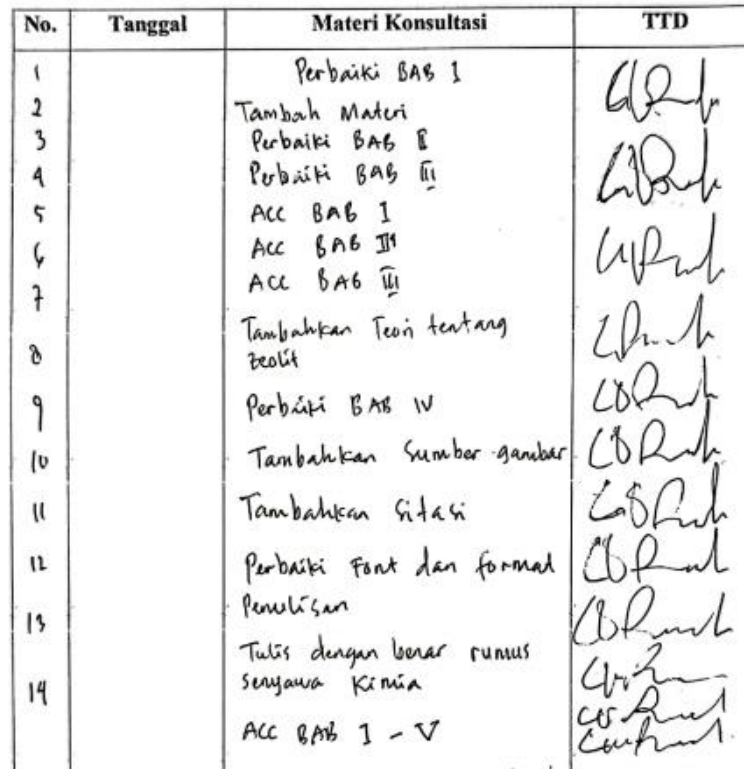 No. Tanggal Materi Konsultasi TTD
1 Perbaiki BAB I
2 Tambah Materi
3 Perbaiki BAB II
4 Perbaiki BAB III
5 ACC BAB I
6 ACC BAB II
7 ACC BAB III
8 Tambahkan Teori tentang
zeolit
9 Perbaiki BAB IV
10 Tambahkan Sumber gambar
11 Tambahkan Sitasi
12 Perbaiki Font dan format
Penulisan
13
Tulis dengan benar rumus
senyawa Kimia
14
ACC BAB I - V